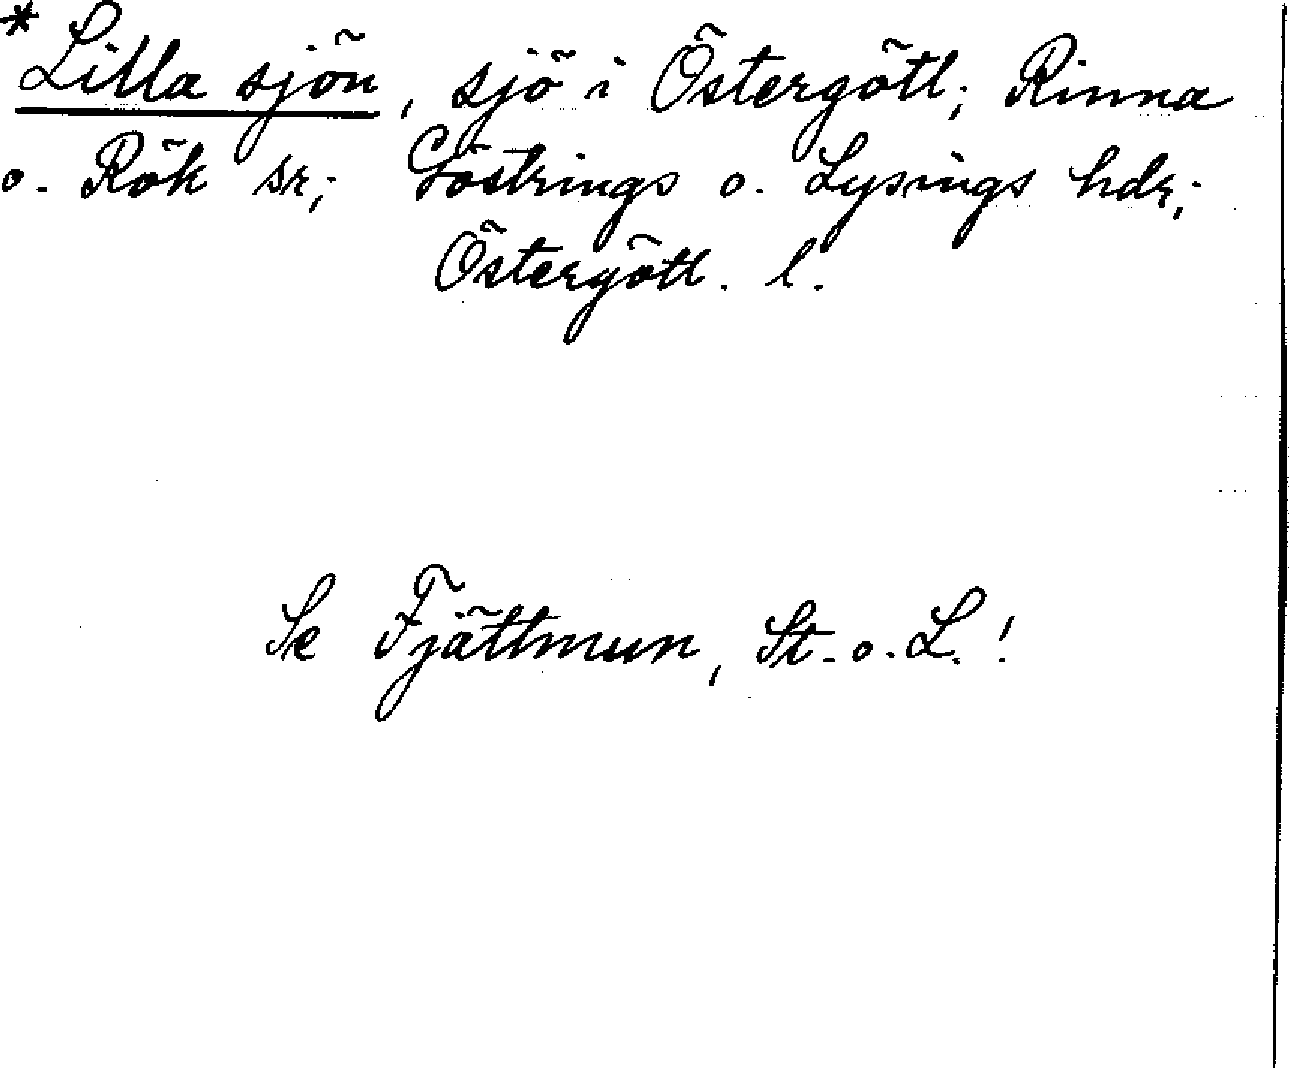 * Lilla sjön, sjö i Östergötl; Rinna
o. Rök sr; Göstrings o. Lysings hdr;
Östergötl. l.
Se Fjättmun, St. o. L.!